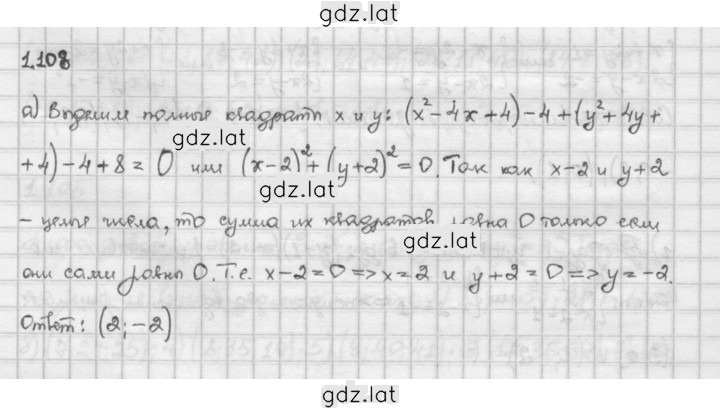 gdz.lat
1.108
а) Выделим полные квадраты x и y: (x² - 4x + 4) - 4 + (y² + 4y +
gdz.lat
+ 4) - 4 + 8 = 0 или (x - 2)² + (y + 2)² = 0. Так как x - 2 и y + 2
gdz.lat
- целые числа, то сумма их квадратов равна 0 только если
gdz.lat
они сами равны 0. Т.е. x - 2 = 0 => x = 2 и y + 2 = 0 => y = -2.
gdz.lat
Ответ: (2; -2)
gdz.lat